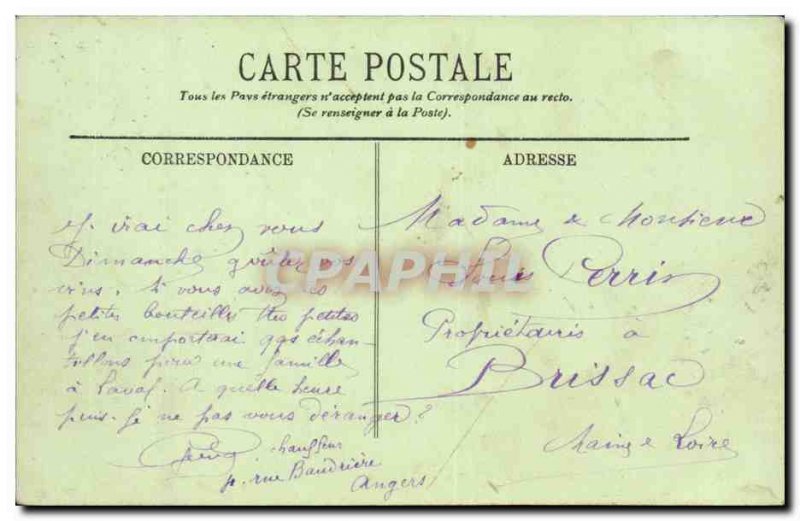 CARTE POSTALE
Tous les Pays étrangers n'acceptent pas la Correspondance au recto.
(Se renseigner à la Poste).
CORRESPONDANCE
irai chez vous
Dimanche goûter vos
vins. Si vous avez des
petites bouteilles très petites
j'en emporterai qqs échan-
tillons pour une famille
à Laval. A quelle heure
puis-je ne pas vous déranger ?
chauffeur
rue Baudrière
Angers
ADRESSE
Madame & Monsieur
Louis Perrin
Propriétaires à
Brissac
Maine & Loire
CPAPHIL